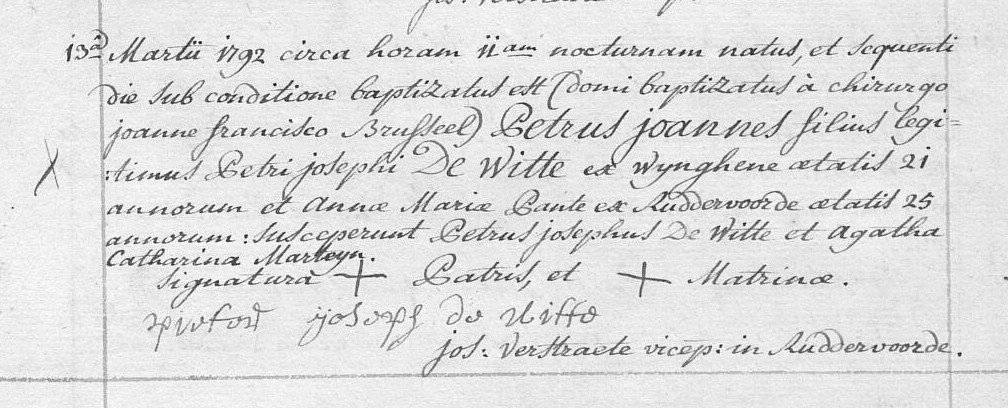 13ª Martii 1792 circa horam 11am nocturnam natus, et sequenti
die sub conditione baptizatus est (domi baptizatus à chirurgo
joanne francisco Brusseel) Petrus joannes filius legi=
:timus Petri josephi De Witte ex Wynghene ætatis 21
annorum et Annæ Mariæ Pante ex Ruddervoorde ætatis 25
annorum: susceperunt Petrus josephus De Witte et Agatha
Catharina Marteyn.
signatura + Patris, et + Matrinæ.
pieter joseph de Witte
jos: Verstraete vicep: in Ruddervoorde.